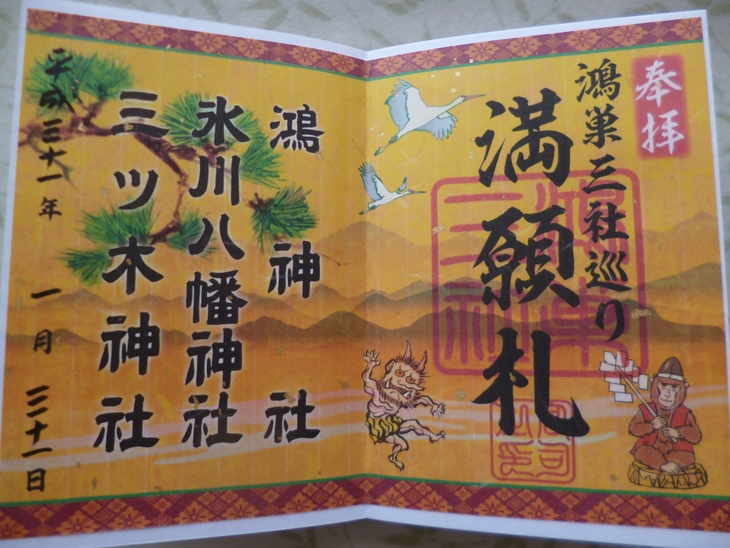 奉拝
鴻巣三社巡り
満願札
鴻神社
氷川八幡神社
三ツ木神社
平成三十一年 一月 二十一日